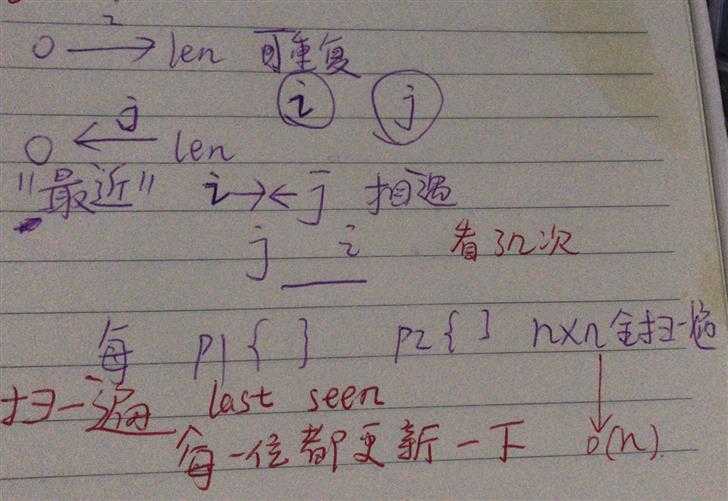 0 → len 可重复
i j
j
0 ← len
"最近" i→←j 相遇
j i 看了n次
每 P1{ } P2{ } n×n全扫一遍
扫一遍 last seen
每一位都更新一下 O(n)